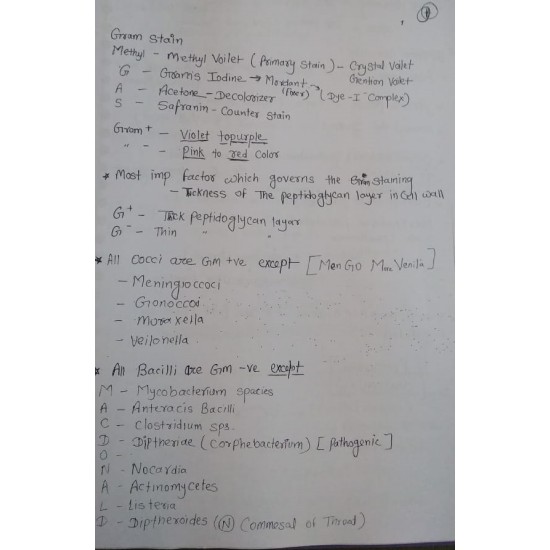 ①
Gram Stain
Methyl - Methyl Voilet (Primary Stain) - Crystal Valet
Gention Valet
G - Gram's Iodine → Mordant (fixer) → (Dye-I⁻ Complex)
A - Acetone - Decolorizer
S - Safranin - Counter Stain
Gram + - Violet topurple
" - - Pink to red color
* Most imp factor which governs the Gram staining
- Tickness of The peptidoglycan layer in Cell wall
G+ - Tick peptidoglycan layar
G- - Thin " "
* All Cocci are Gm +ve except [Men GO Mora Venila]
- Meningococci
- Gonoccoi
- Moraxella
- Veilonella
* All Bacilli are Gm -ve except
M - Mycobacterium spacies
A - Anteracis Bacilli
C - Clostridium sps.
D - Diptheriae (Corphebacterium) [Pathogenic]
O -
N - Nocardia
A - Actinomycetes
L - Listeria
D - Diptheroides (Ⓝ Commosal of Throad)